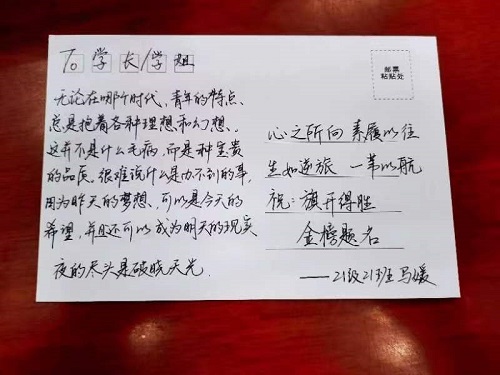 To 学长/学姐
邮票
粘贴处
无论在哪个时代，青年的特点、
总是抱着各种理想和幻想、
这并不是什么毛病，而是种宝贵
的品质。很难说什么是办不到的事，
因为昨天的梦想，可以是今天的
希望，并且还可以成为明天的现实
夜的尽头是破晓天光.
心之所向 素履以往
生如逆旅 一苇以航
祝：旗开得胜
金榜题名
——21级21班 马媛